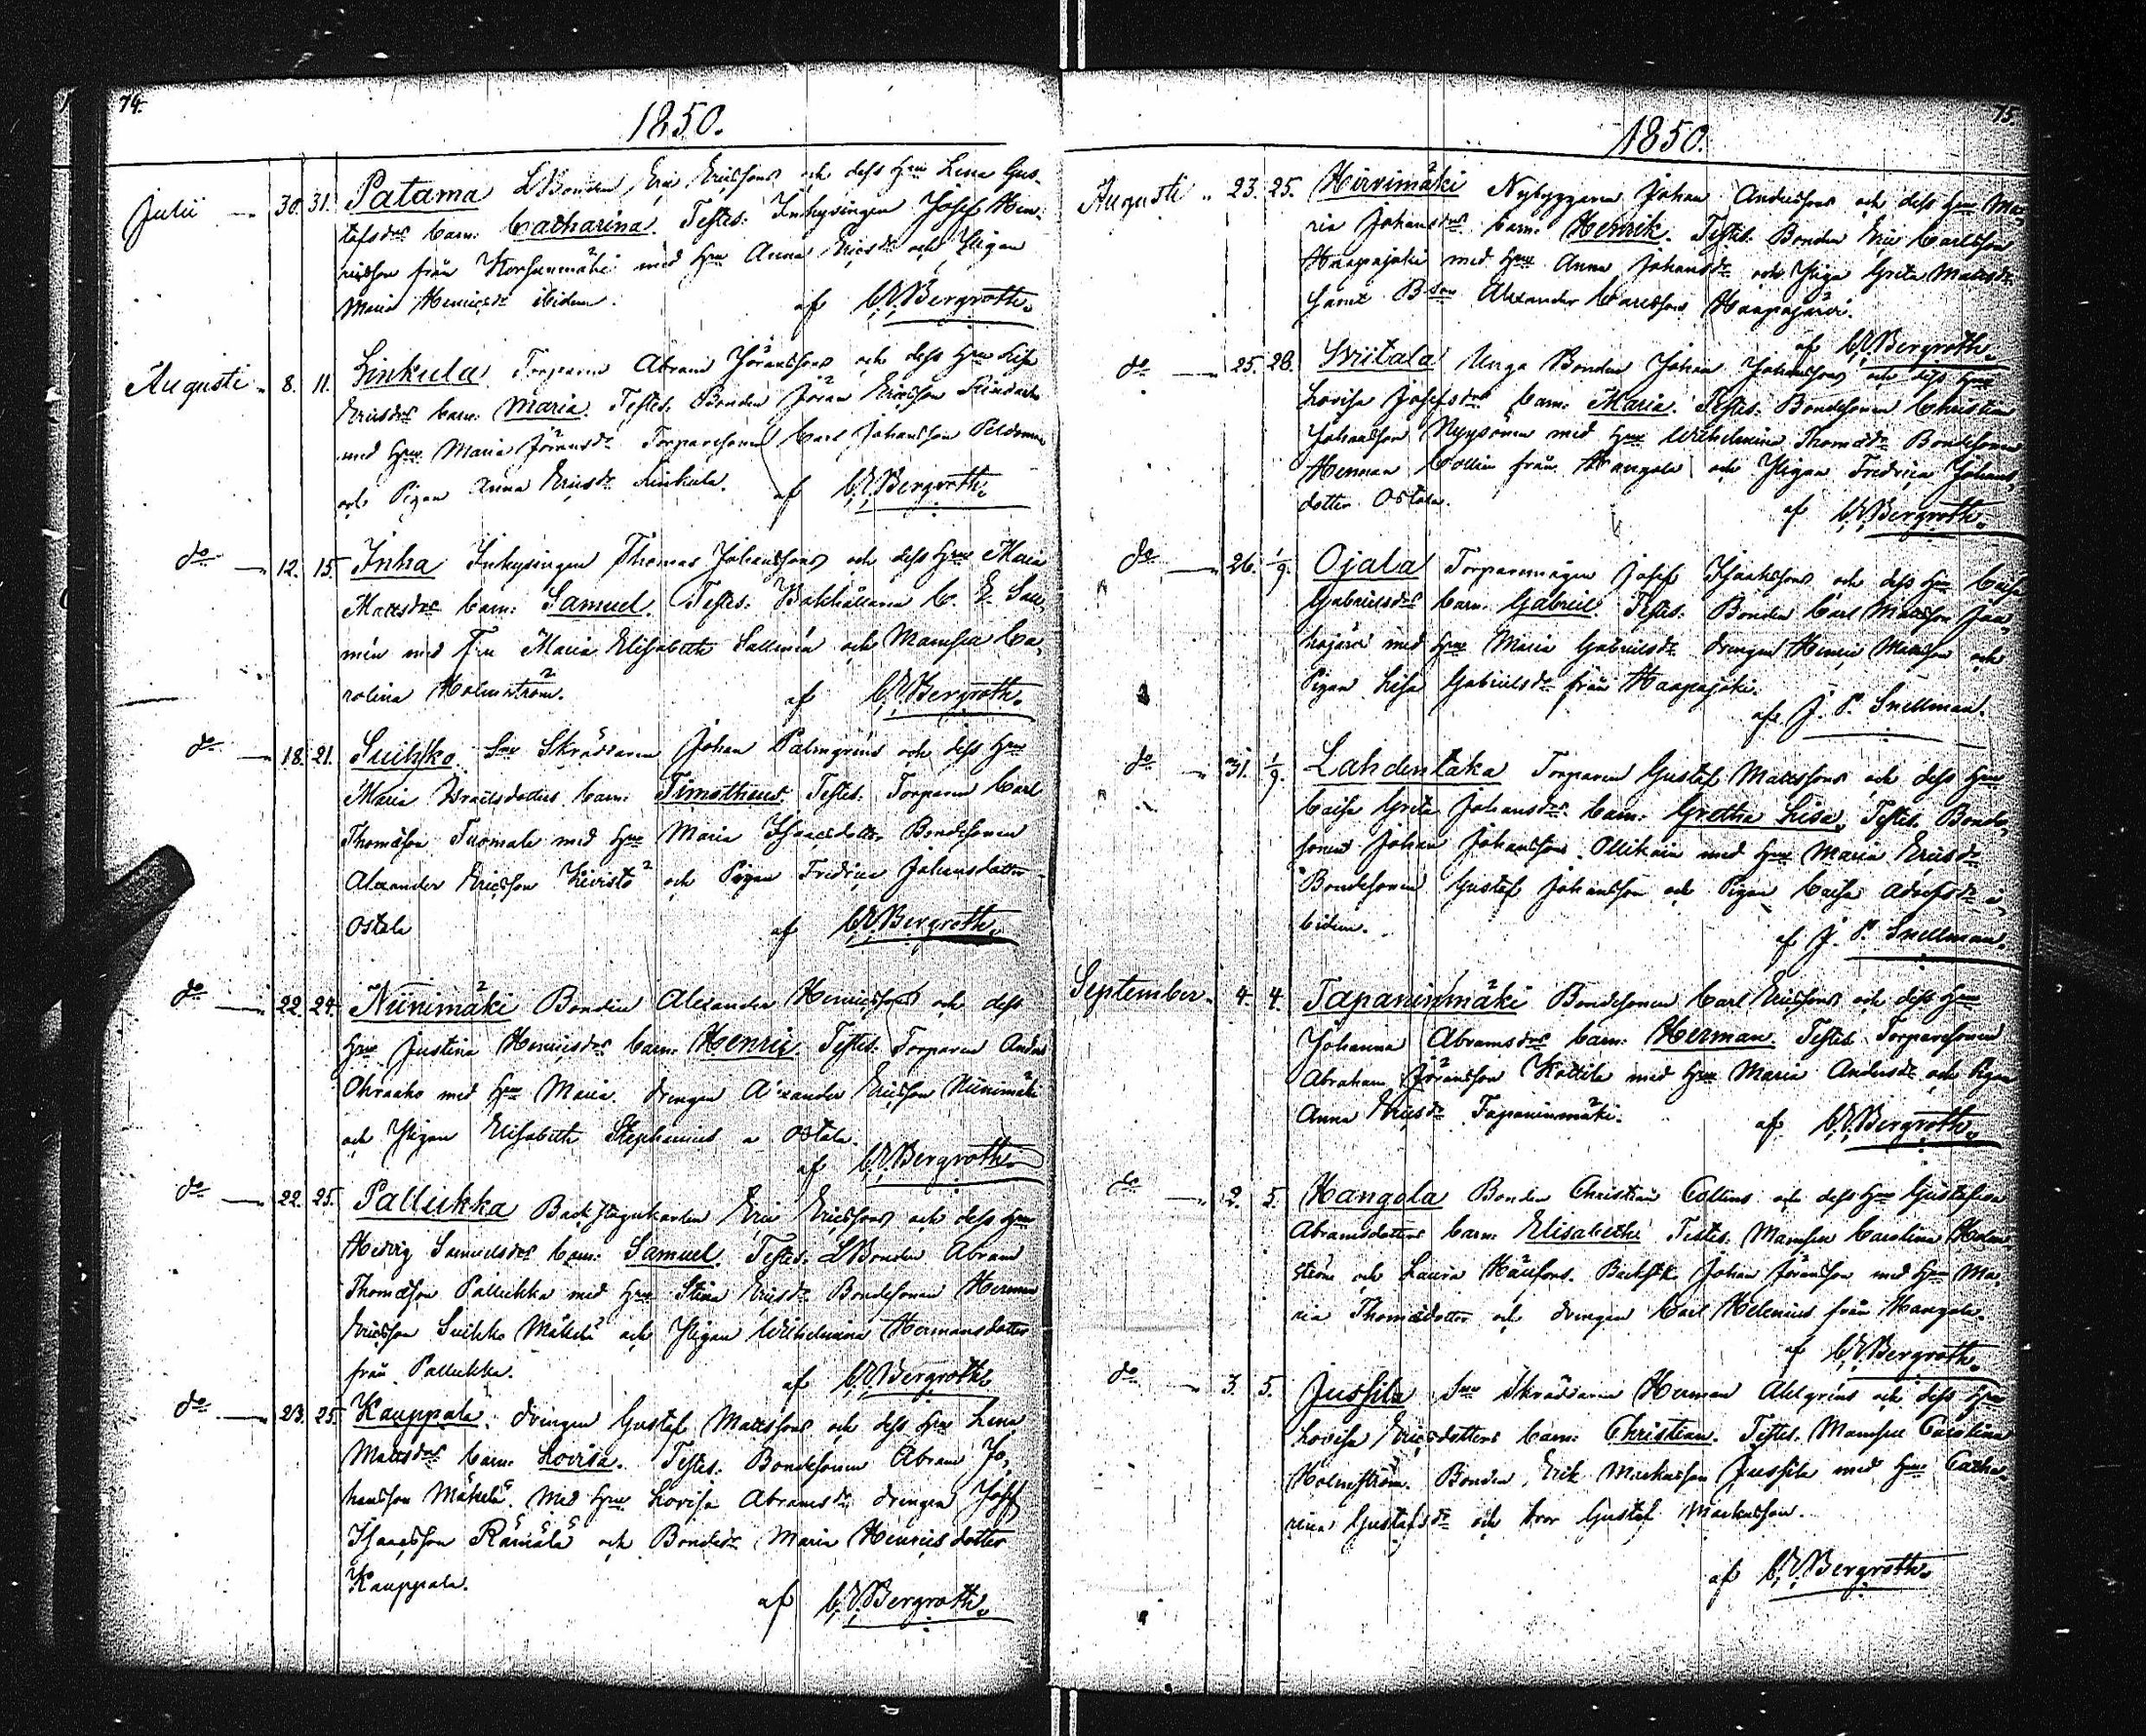 74.
1850.
Julii 30. 31. Patama LBonden Eric Ericssons och dess Hru Lena Gus-
tafsdrs barn: Catharina. Testes: Inhysingen Josef Hen-
ricsson från Korhunmäki med Hru Anna Ericsdr och Pigan
Maria Henricsdr ibidem. af C.E.Bergroth.
Augusti 8. 11. Linkula Torparen Abram Jöranssons och dess Hru Lisa
Ericsdrs barn: Maria. Testes: Bonden Jöran Ericsson
med Hru Maria Jöransdr Torparesonen Carl Johansson
och Pigan Anna Ericsdr Linkula. af C.E.Bergroth.
do 12. 15. Inha Inhysingen Thomas Johanssons och dess Hru Maria
Mattsdrs barn: Samuel. Testes: Bokhållaren C. E. Sall-
mén med Fru Maria Elisabeth Sallmén och Mamsell Ca-
rolina Holmström. af C.E.Bergroth.
do 18. 21. Suihko Snr Skräddaren Johan Palmgrens och dess Hru
Maria Israelsdotters barn: Timotheus. Testes: Torparen Carl
Thomasson Tuomala med Hru Maria Isaacsdotter Bondesonen
Alexander Ericsson Kivistö och Pigan Fredrica Johansdotter
Ostola af C.E.Bergroth.
do 22. 24. Niinimäki Bonden Alexander Henricssons och dess
Hru Justina Henricsdrs barn: Henric Testes: Torparen Anders
Ohraaho med Hru Maria. drengen Alexander Ericsson Niinimäki
och Pigan Elisabeth Stephanius a Ostola.
af C.E.Bergroth.
do 22. 25. Pallukka Backstugukarlen Eric Ericssons och dess Hru
Hedvig Samuelsdrs barn: Samuel. Testes: LBonden Abram
Thomasson Pallukka med Hru Stina Ericsdr Bondesonen Herman
Ericsson Suihko Mäkelä och Pigan Wilhelmina Hermansdotter
från Pallukka. af C.E.Bergroth.
do 23. 25. Kauppala. drengen Gustaf Mattssons och dess Hru Lena
Mattsdrs barn: Lovisa. Testes: Bondesonen Abram Jo-
hansson Mäkelä. Med Hru Lovisa Abramsdr drengen Josef
Isaacsson Rämälä och Bondedr Maria Henricsdotter
Kauppala. af C.E.Bergroth.
75.
1850.
Augusti 23. 25. Hirvimäki Nybyggaren Johan Anderssons och dess Hru Ma-
ria Johansdrs barn: Henrik. Testes: Bonden Eric Carlsson
Haapajoki med Hru Anna Johansdr och Piga Greta Mattsdr
samt Bson Alexander Carlsson Haapajärvi.
af C.E.Bergroth.
do 25. 28. Wiitala Unga Bonden Johan Johanssons och dess Hru
Lovisa Josefsdrs barn: Maria. Testes: Bondesonen Christian
Johansson Nyysönen med Hru Wilhelmina Thomasdr Bondesonen
Herman Collin från Hangola och Pigan Fredrica Johans-
dotter Ostola. af C.E.Bergroth.
do 26. 1/9. Ojala Torparemågen Josef Isaacssons och dess Hru Caisa
Gabrielsdrs barn: Gabriel. Testes: Bonden Carl Mattsson
med Hru Maria Gabrielsdr drengen Henric Mattsson och
Pigan Lisa Gabrielsdr från Haapajoki.
af J. P. Snellman.
do 31. 1/9. Lahdentaka Torparen Gustaf Mattssons och dess Hru
Caisa Greta Johansdrs barn: Gretha Lisa. Testes: Bonde-
sonen Johan Johansson Ollikain med Hru Maria Ericsdr
Bondesonen Gustaf Johansson och Pigan Caisa Adolfsdr i-
bidem. af J. P. Snellman.
September 4. 4. Tapaninmäki Bondesonen Carl Ericssons och dess Hru
Johanna Abramsdrs barn: Herman. Testes: Torparesonen
Abraham Jöransson Kattila med Hru Maria Andersdr och Pigan
Anna Ericsdr Tapaninmäki. af C.E.Bergroth.
do 2. 5. Hangola Bonden Christian Collins och dess Hru Gustafva
Abramsdotters barn: Elisabeth. Testes: Mamsell Carolina Holm-
ström och Laura Häufors. Backstk. Johan Jöransson med Hru Ma-
ria Thomasdotter och drengen Carl Helenius från Hangola.
af C.E.Bergroth.
do 3. 5. Jussila Snr Skräddaren Herman Ahlgrens och dess Hru
Lovisa Ericsdotters barn: Christian. Testes: Mamsell Carolina
Holmström. Bonden Erik Markusson Jussila med Hru Catha-
rina Gustafsdr och bror Gustaf Markusson.
af C.E.Bergroth.